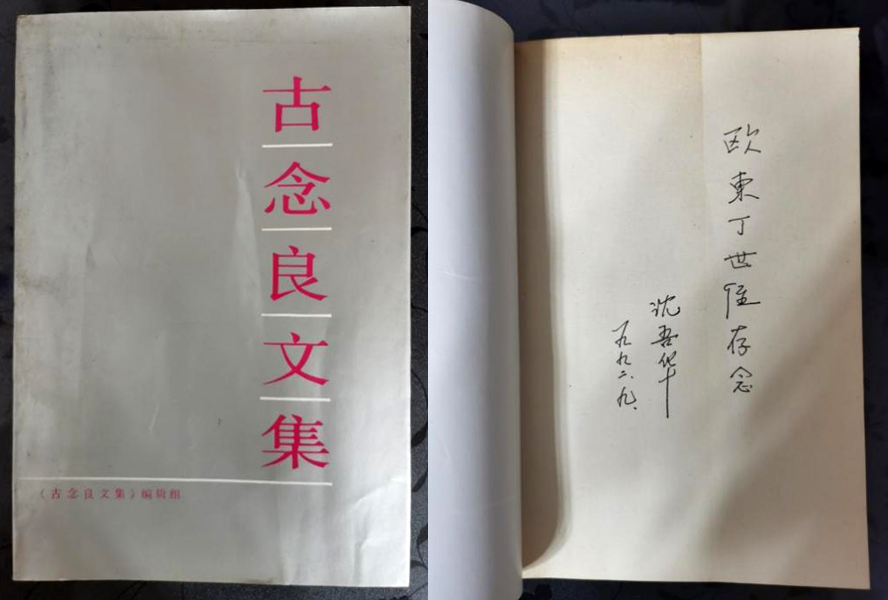 古念良文集
《古念良文集》编辑组
欧東丁世侄存念
沈吾华
一九九二.九.